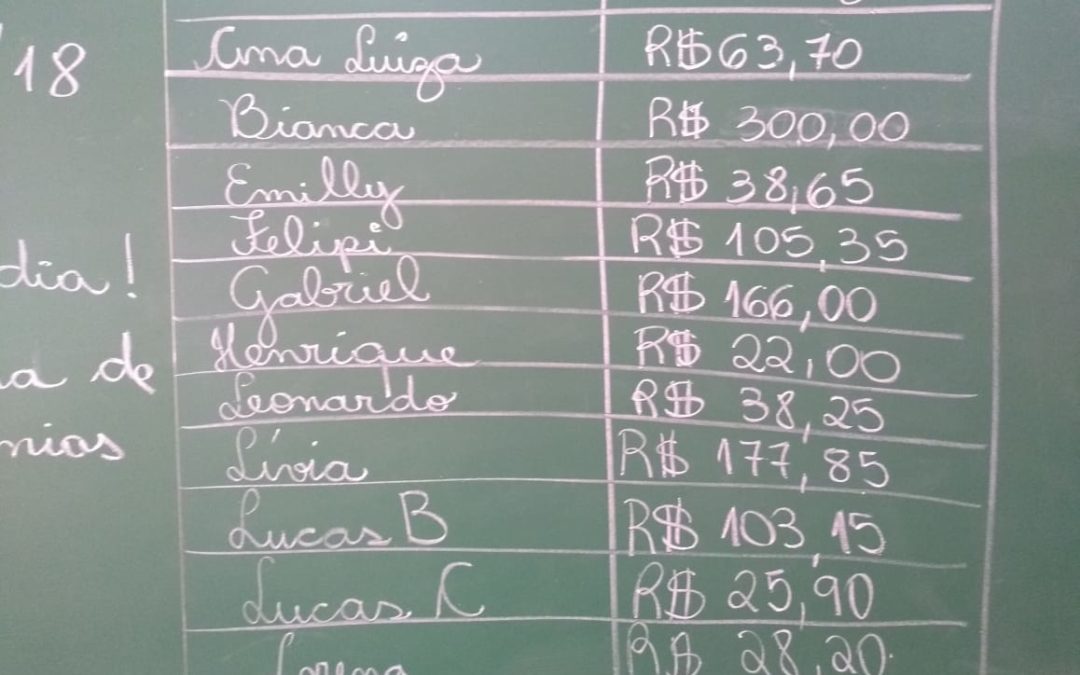 18
Ana Luiza R$ 63,70
Bianca R$ 300,00
Emilly R$ 38,65
Felipi R$ 105,35
dia!
Gabriel R$ 166,00
Henrique R$ 22,00
a de
Leonardo R$ 38,25
Lívia R$ 177,85
Lucas B R$ 103,15
Lucas C R$ 25,90
Lorena R$ 28,20